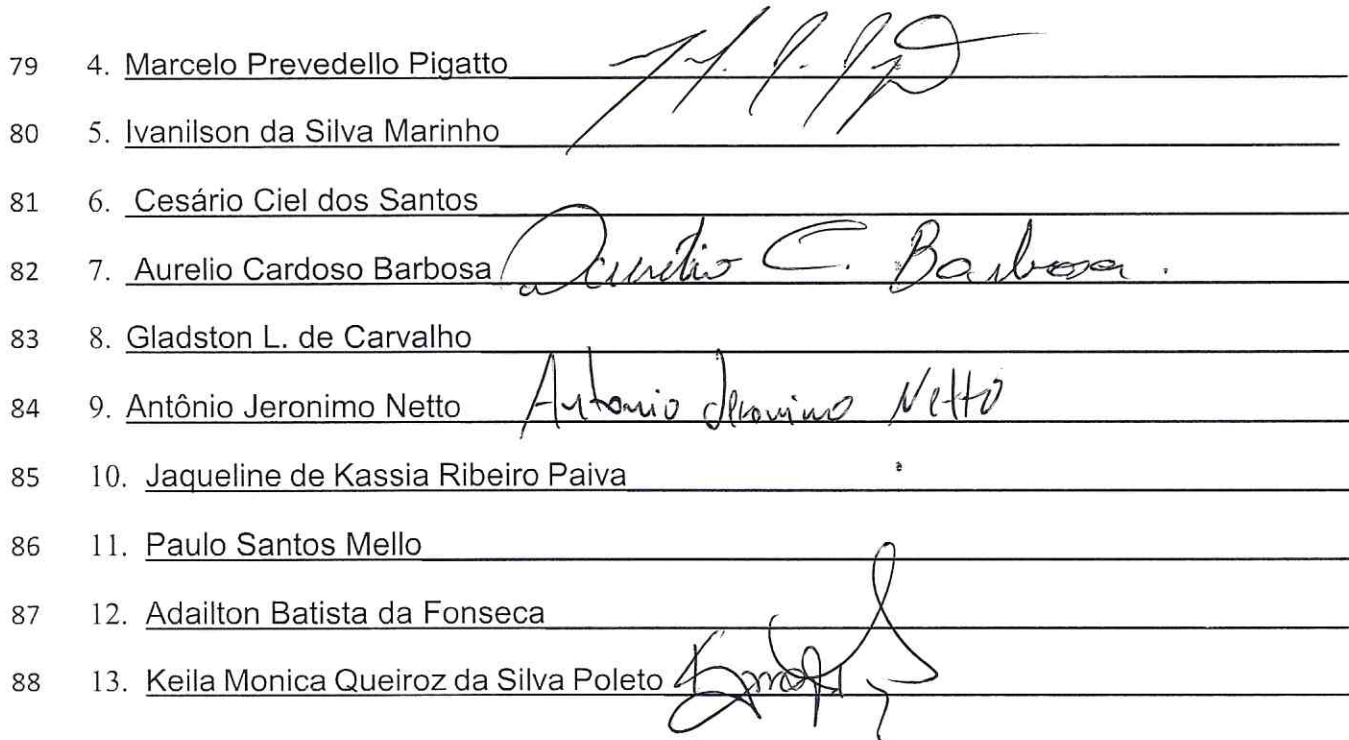 79 4. Marcelo Prevedello Pigatto
80 5. Ivanilson da Silva Marinho
81 6. Cesário Ciel dos Santos
82 7. Aurelio Cardoso Barbosa Aurelio C. Barbosa.
83 8. Gladston L. de Carvalho
84 9. Antônio Jeronimo Netto Antonio Jeronimo Netto
85 10. Jaqueline de Kassia Ribeiro Paiva
86 11. Paulo Santos Mello
87 12. Adailton Batista da Fonseca
88 13. Keila Monica Queiroz da Silva Poleto